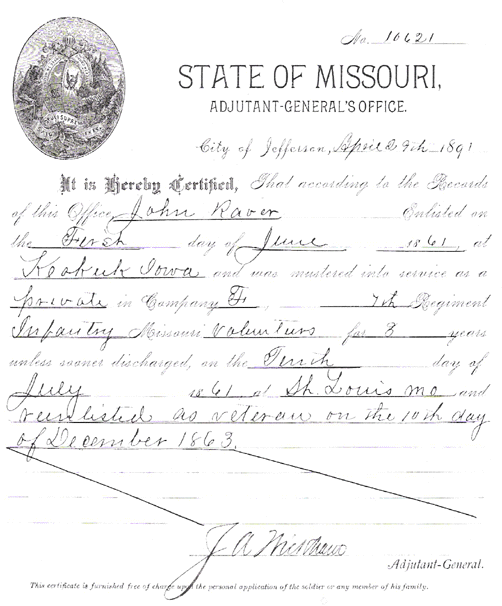 No. 10621
STATE OF MISSOURI,
ADJUTANT-GENERAL'S OFFICE.
City of Jefferson, April 29th 1891
It is Hereby Certified, That according to the Records
of this Office, John Raver Enlisted on
the First day of June 1861, at
Keokuk Iowa and was mustered into service as a
private in Company F, 7th Regiment
Infantry Missouri Volunturs for 3 years
unless sooner discharged, on the Tenth day of
July 1861 at St. Louis Mo and
reenlisted as veteran on the 10th day
of December 1863.
J A
Adjutant-General.
This certificate is furnished free of charge upon the personal application of the soldier or any member of his family.